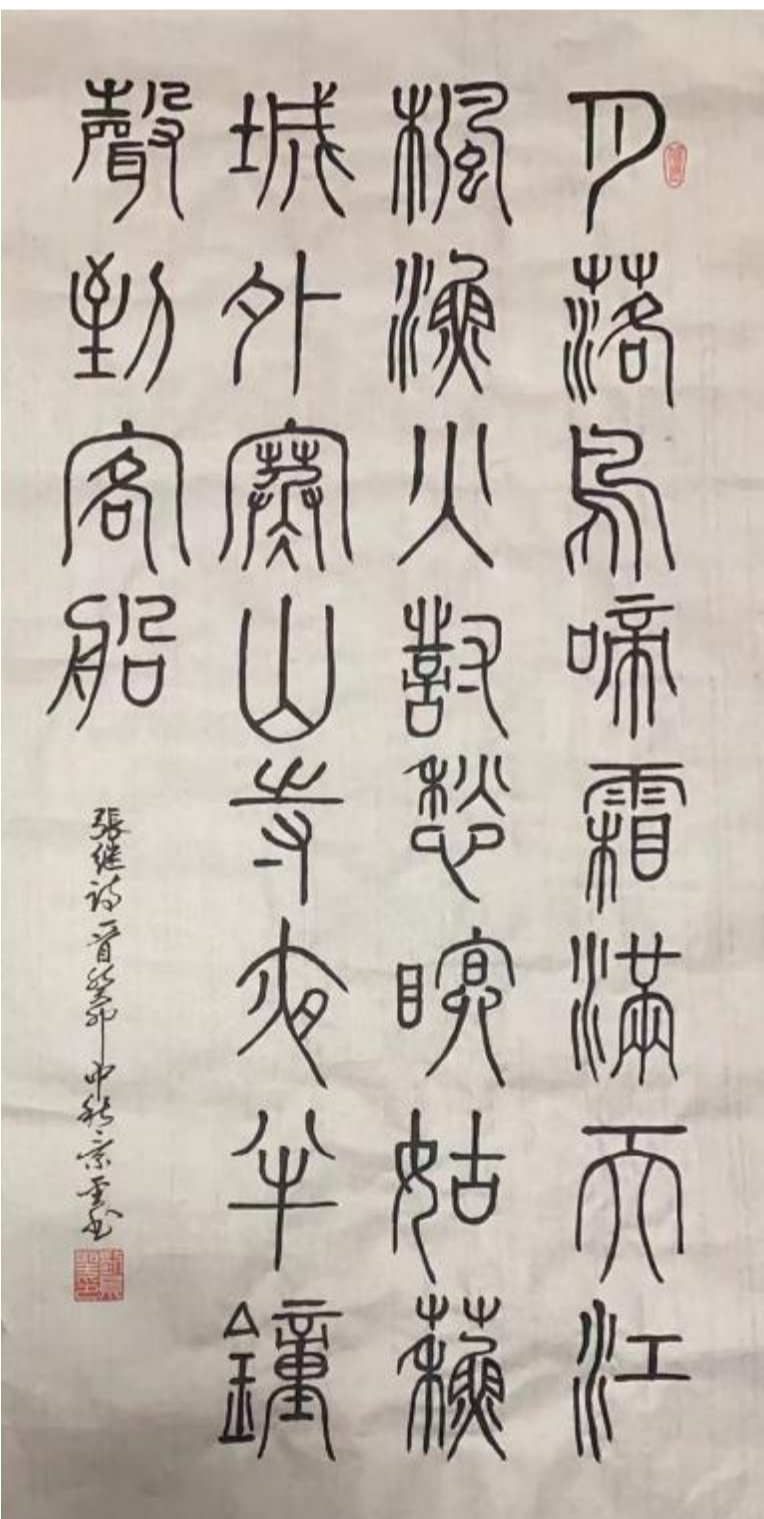 月落烏啼霜滿天江
楓漁火對愁瞑姑蘇
城外寒山寺夜半鐘
聲到客船
張继詩一首癸卯中秋